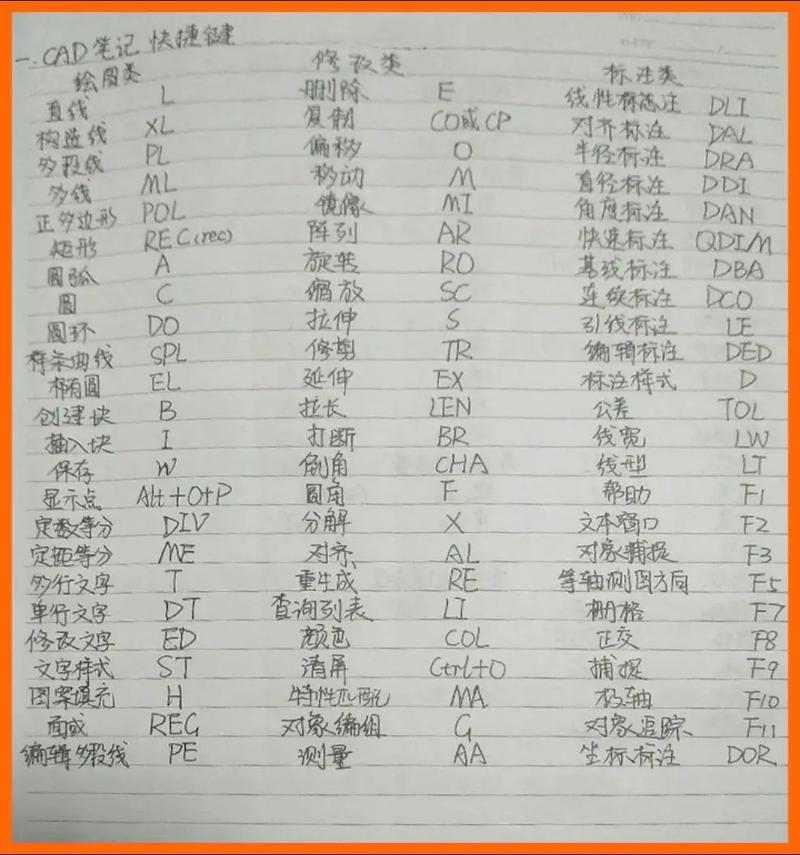 一.CAD笔记 快捷键
绘图类 修改类 标注类
直线 L 删除 E 线性标注 DLI
构造线 XL 复制 CO或CP 对齐标注 DAL
多段线 PL 偏移 O 半径标注 DRA
多线 ML 移动 M 直径标注 DDI
正多边形 POL 镜像 MI 角度标注 DAN
矩形 REC(rec) 阵列 AR 快速标注 QDIM
圆弧 A 旋转 RO 基线标注 DBA
圆 C 缩放 SC 连续标注 DCO
圆环 DO 拉伸 S 引线标注 LE
样条曲线 SPL 修剪 TR 编辑标注 DED
椭圆 EL 延伸 EX 标注样式 D
创建块 B 拉长 LEN 公差 TOL
插入块 I 打断 BR 线宽 LW
保存 W 倒角 CHA 线型 LT
显示点 Alt+O+P 圆角 F 帮助 F1
定数等分 DIV 分解 X 文本窗口 F2
定距等分 ME 对齐 AL 对象捕捉 F3
多行文字 T 重生成 RE 等轴测图方向 F5
单行文字 DT 查询列表 LI 栅格 F7
修改文字 ED 颜色 COL 正交 F8
文字样式 ST 清屏 Ctrl+0 捕捉 F9
图案填充 H 特性匹配 MA 极轴 F10
面域 REG 对象编组 G 对象追踪 F11
编辑多段线 PE 测量 AA 坐标标注 DOR